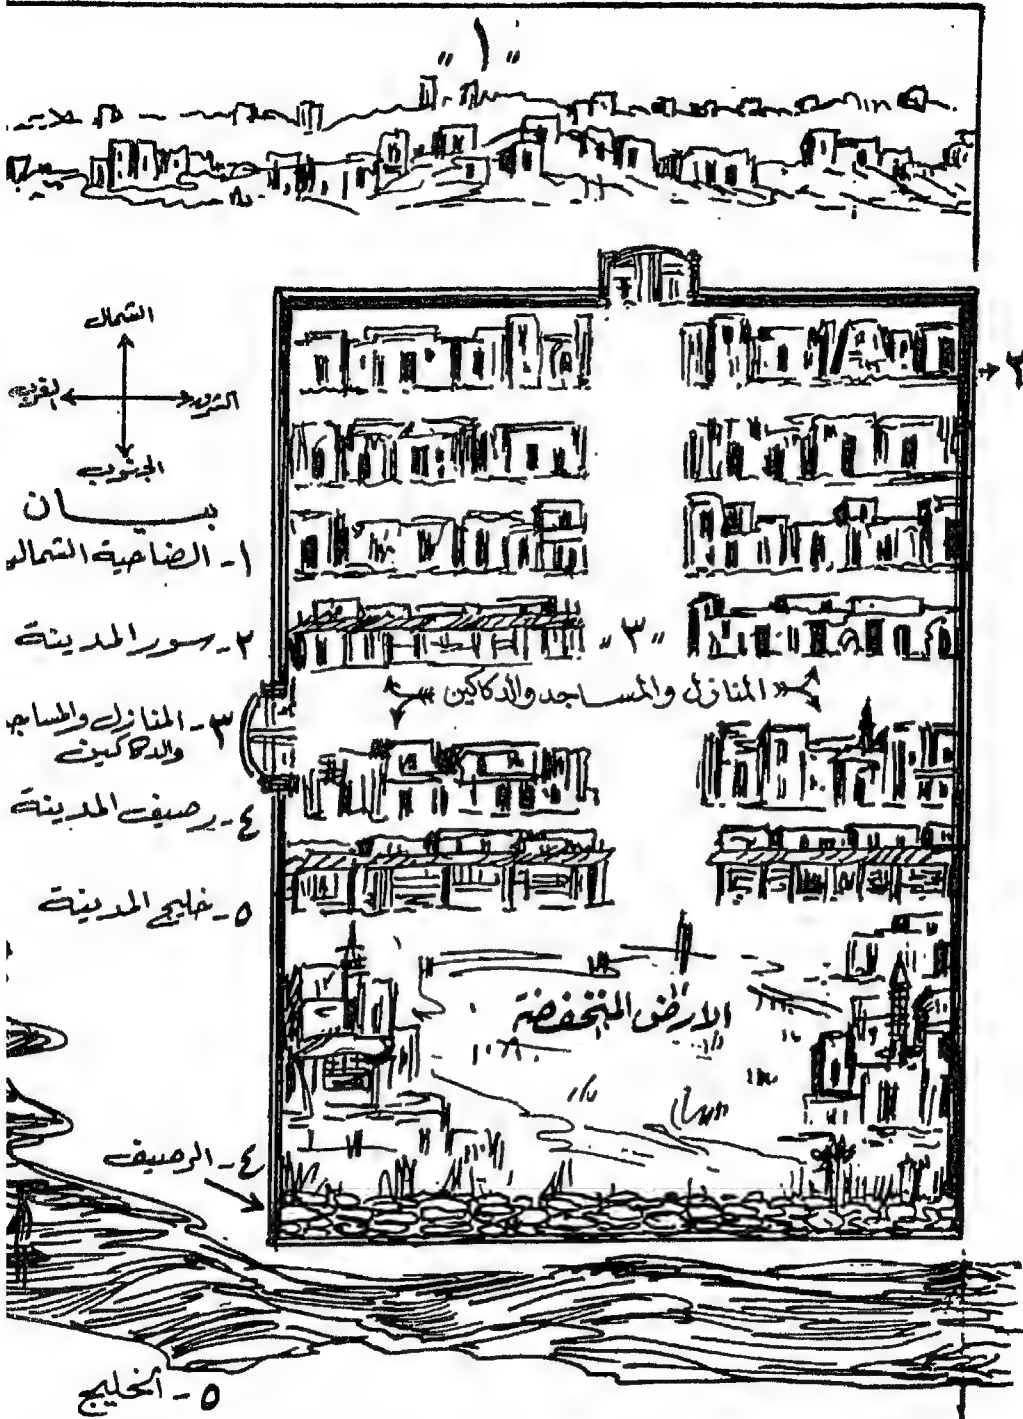 "١"
الشمال
الغرب
الشرق
الجنوب
بيــــان
١- الضاحية الشمالي
٢- سور المدينة
٣- المنازل والمساجد
والدكاكين
٤- رصيف المدينة
٥- خليج المدينة
٢
"٣"
«المنازل والمساجد والدكاكين»
الارض المنخفضة
٤- الرصيف
٥- الخليج